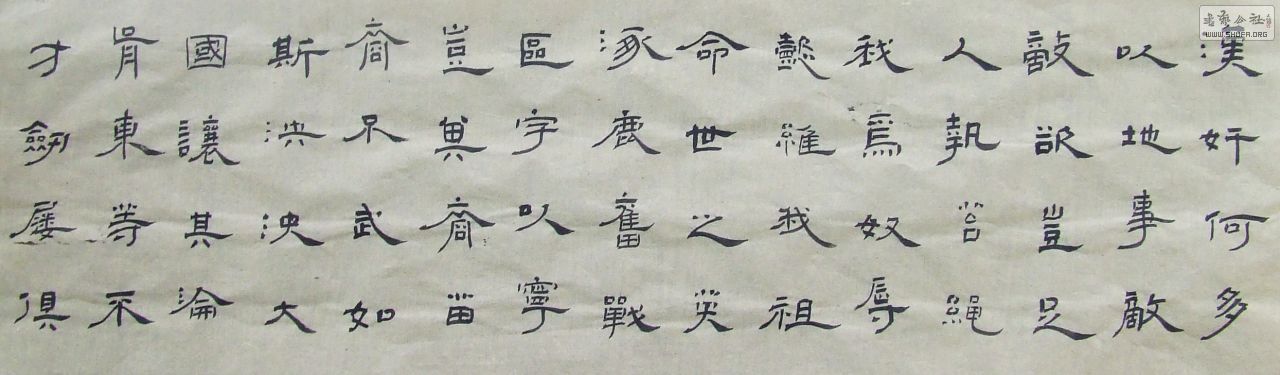 漢奸何多
以地事敵
敵欲豈足
人執笞繩
我爲奴辱
懿維我祖
命世之英
涿鹿奮戰
區字以寧
豈其裔苗
裔不武如
斯泱泱大
國讓其淪
胥東等不
才劒屨俱
书艺公社
WWW.SHUFA.ORG